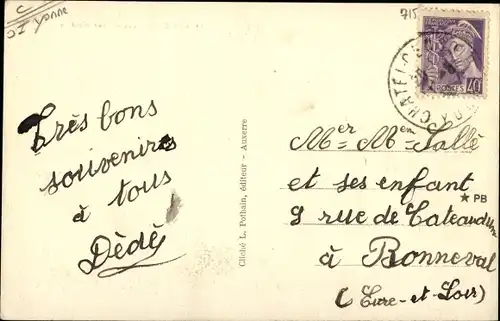 Yonne
715
Très bons
souvenirs
à tous
Dèdè
Cliché L. Pothain, éditeur - Auxerre
40
Mer Men Sallé
et ses enfant
9 rue de Cateaudun
à Bonneval
(Eure-et-Loir)
★PB